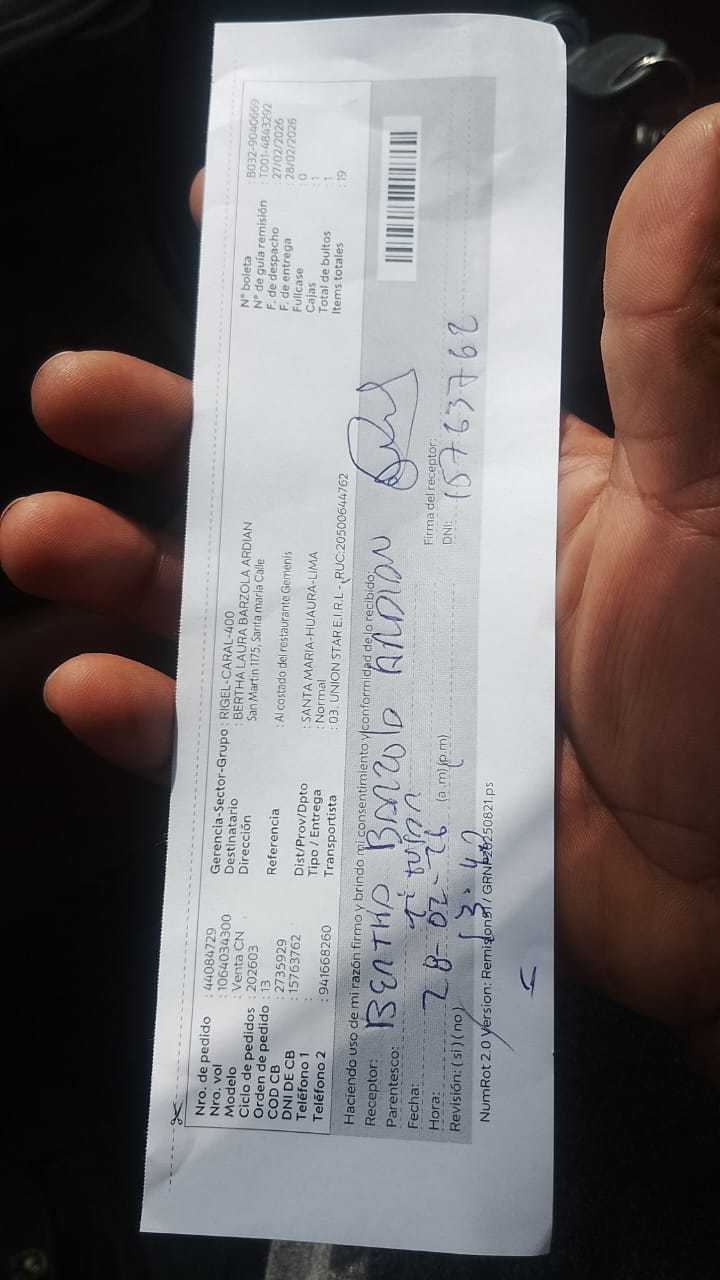 Nro. de pedido : 44084729
Nro. vol : 1064034300
Modelo : Venta CN
Ciclo de pedidos : 202603
Orden de pedido : 13
COD CB : 2735929
DNI DE CB : 15763762
Teléfono 1 :
Teléfono 2 : 941668260
Gerencia-Sector-Grupo : RIGEL-CARAL-400
Destinatario : BERTHA LAURA BARZOLA ARDIAN
Dirección : San Martin 1175, Santa maria Calle
Referencia : Al costado del restaurante Gemenis
Dist/Prov/Dpto : SANTA MARIA-HUAURA-LIMA
Tipo / Entrega : Normal
Transportista : 03. UNION STAR E.I.R.L - RUC:20500644762
N° boleta : B032-9040669
N° de guía remisión : T001-4843292
F. de despacho : 27/02/2026
F. de entrega : 28/02/2026
Fullcase : 0
Cajas : 1
Total de bultos : 1
Items totales : 19
Haciendo uso de mi razón firmo y brindo mi consentimiento y conformidad de lo recibido:
Receptor: BERTHA BARZOLA ARDIAN
Parentesco: Titular
Fecha: 28-02-26
Hora: 13:42 (a.m) (p.m)
Revisión: ( si ) ( no )
Firma del receptor:
DNI: 15763762
NumRot 2.0 Version: Remision51 / GRNI-20250821.ps